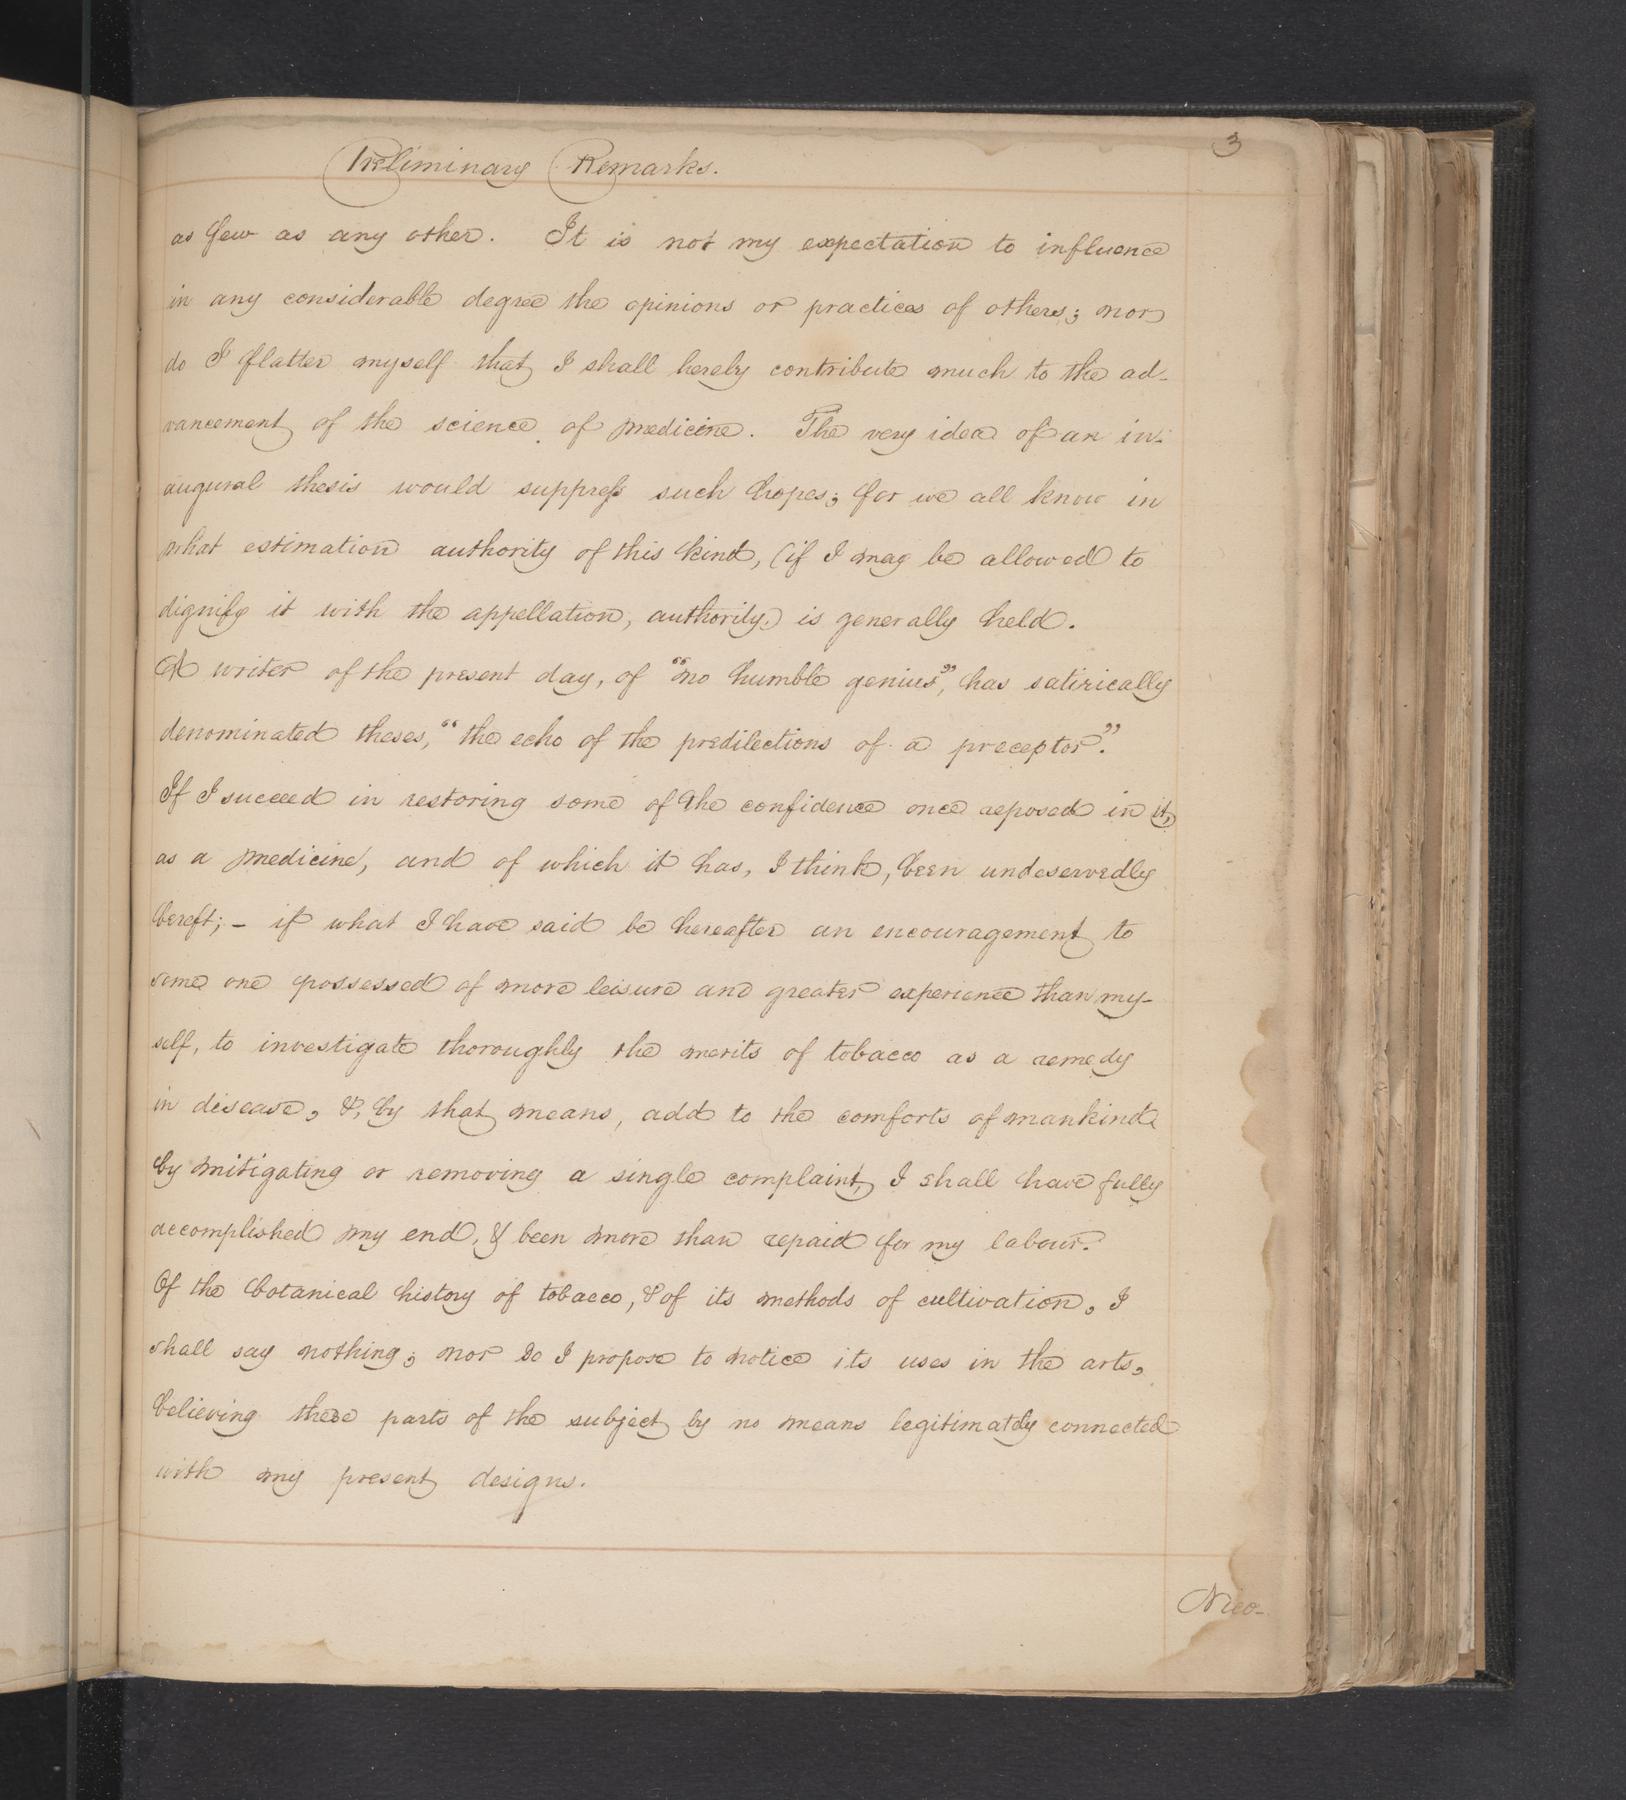 Preliminary Remarks.
3
as few as any other. It is not my expectation to influence
in any considerable degree the opinions or practices of others; nor
do I flatter myself that I shall hereby contribute much to the ad-
vancement of the science of medicine. The very idea of an in-
augural thesis would suppress such hopes; for we all know in
what estimation authority of this kind, (if I may be allowed to
dignify it with the appellation, authority,) is generally held.
A writer of the present day, of "no humble genius", has satirically
denominated theses, "the echo of the predilections of a preceptor."
If I succeed in restoring some of the confidence once reposed in it,
as a medicine, and of which it has, I think, been undeservedly
bereft; - if what I have said be hereafter an encouragement to
some one possessed of more leisure and greater experience than my-
self, to investigate thoroughly the merits of tobacco as a remedy
in disease, &, by that means, add to the comforts of mankind
by mitigating or removing a single complaint, I shall have fully
accomplished my end, & been more than repaid for my labour.
Of the botanical history of tobacco, & of its methods of cultivation, I
shall say nothing; nor do I propose to notice its uses in the arts,
believing these parts of the subject by no means legitimately connected
with my present designs.
Nico-